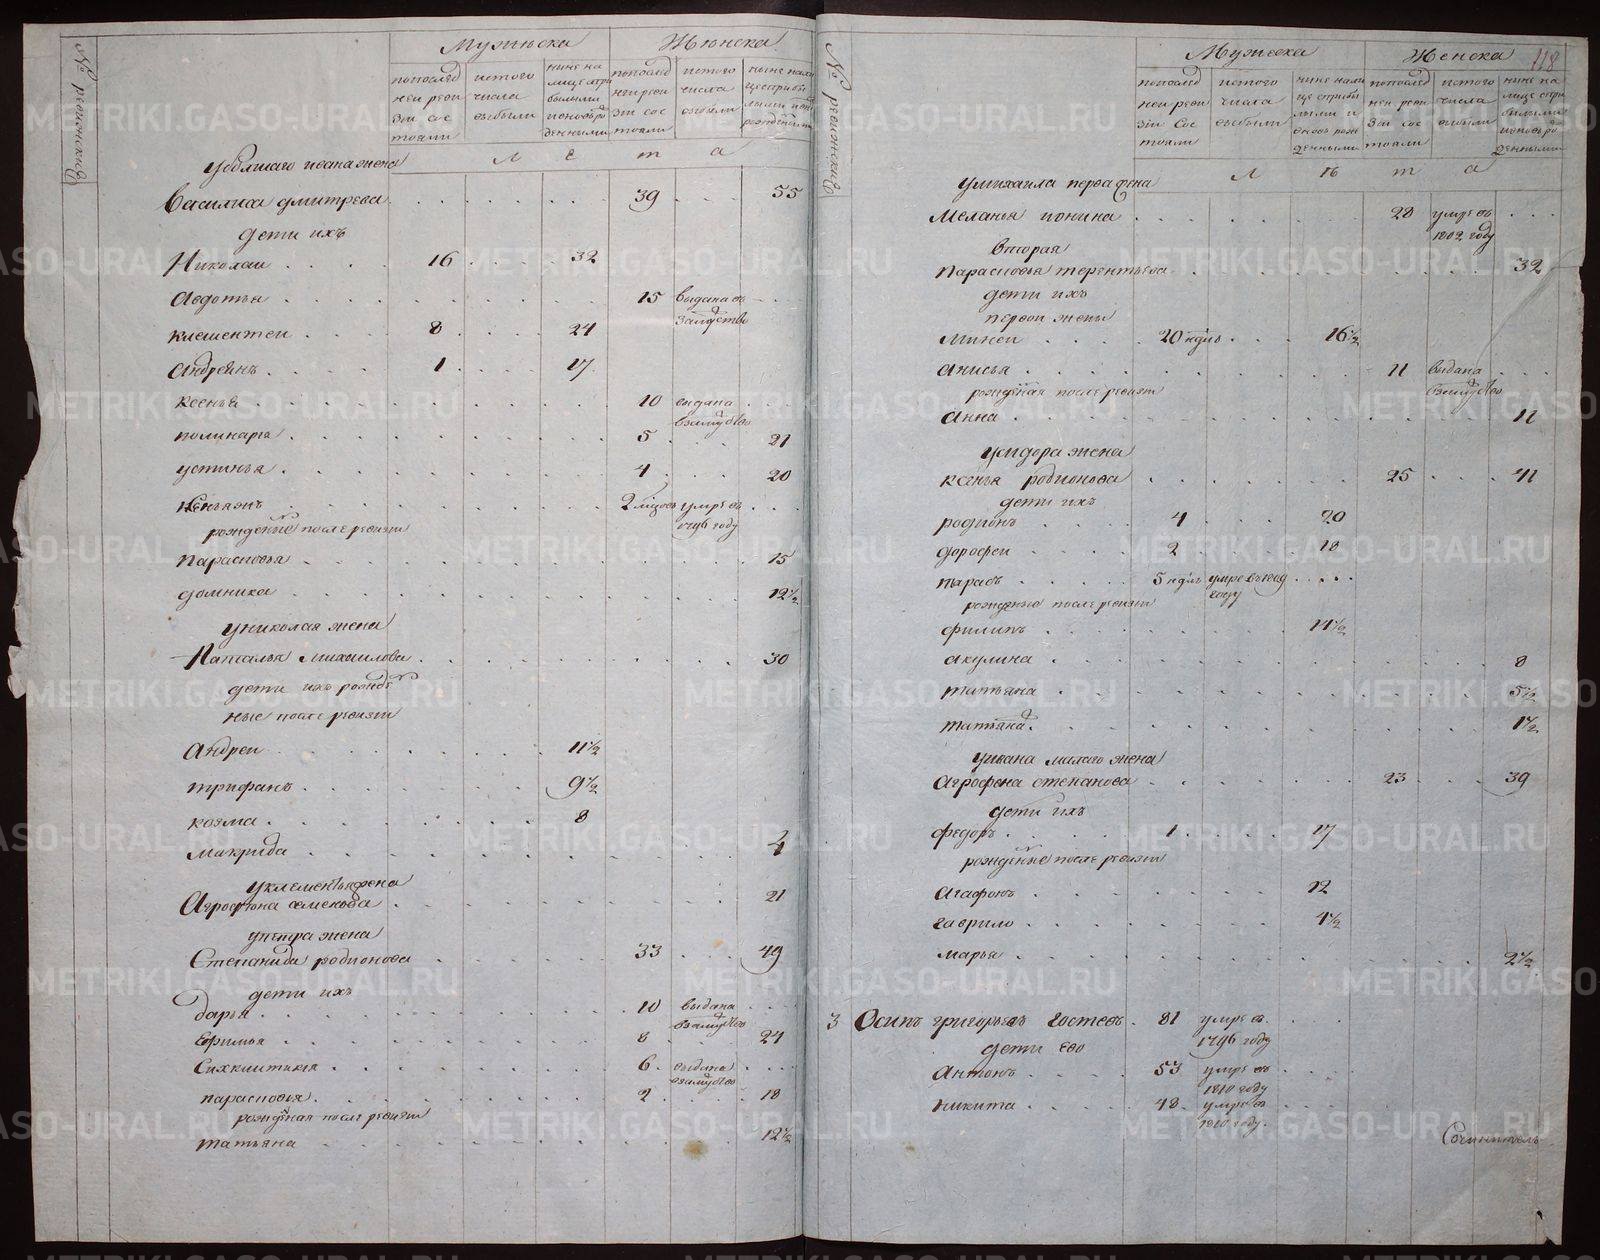 № ревижския
Мужеска Женска
попослед ней реви зии сос тояли
истого числа выбыли
ныне на лице спри былыми иновь ро жденными
попослед ней реви зии сос тояли
истого числа выбыли
Л Е т а
уболшаго ивана жена
Василиса дмитрева 39 55
дети ихъ
Николаи 16 32
Авдотья 15 выдана въ замужство
Клементеи 8 24
Андреянъ 1 17
Ксенья 10 выдана взамужство
полинария 5 21
устинья 4 20
2 умре въ 1796 году
рожденые после ревизии
Парасковья 15
домника 12½
униколая жена
Наталья михаилова 30
дети ихъ рожде
ные после ревизии
Андреи 11½
трифанъ 9½
козма 8
Макрида 4
уклементья жена
Агрофена семенова 21
упетра жена
Степанида родионова 33 49
дети ихъ
дарья 10 выдана взамужство
Ефимья 8 24
6 выдана взамужство
парасковья 2 18
рожденая после ревизии
татьяна 12½
№ ревижския
118
Мужеска Женска
попослед ней реви зии сос тояли
истого числа выбыли
ныне нали це сприбы лыми и вновь рож денными
попослед ней реви зии сос тояли
истого числа выбыли
ныне на лице спри былыми иновь ро жденными
Л т а
умихаила перва жена
Меланья ионина 28 умре въ 1802 году
Вторая
Парасковья терентьева 32
дети ихъ
первои жены
Минеи 20 нділь 16½
Анисья 11 выдана взамужство
рожденая после ревизии
Анна 11
усидора жена
Ксенья родионова 25 41
дети ихъ
родионъ 4 20
дорофеи 2 18
тарасъ 5 нділь умре году
рожденые после ревизии
филипъ 14½
акулина 8
татьяна 5½
татьяна 1½
уивана малаго жена
Агрофена степанова 23 39
дети ихъ
федоръ 1 17
рожденые после ревизии
Агафонъ 12
гаврило 4½
марья 2½
3 Осипъ григорьевъ гостевъ 81 умре въ 1796 году
дети ево
Антонъ 53 умре въ 1810 году
никита 48 умре въ 1810 году
Сочинителъ
METRIKI.GASO-URAL.RU